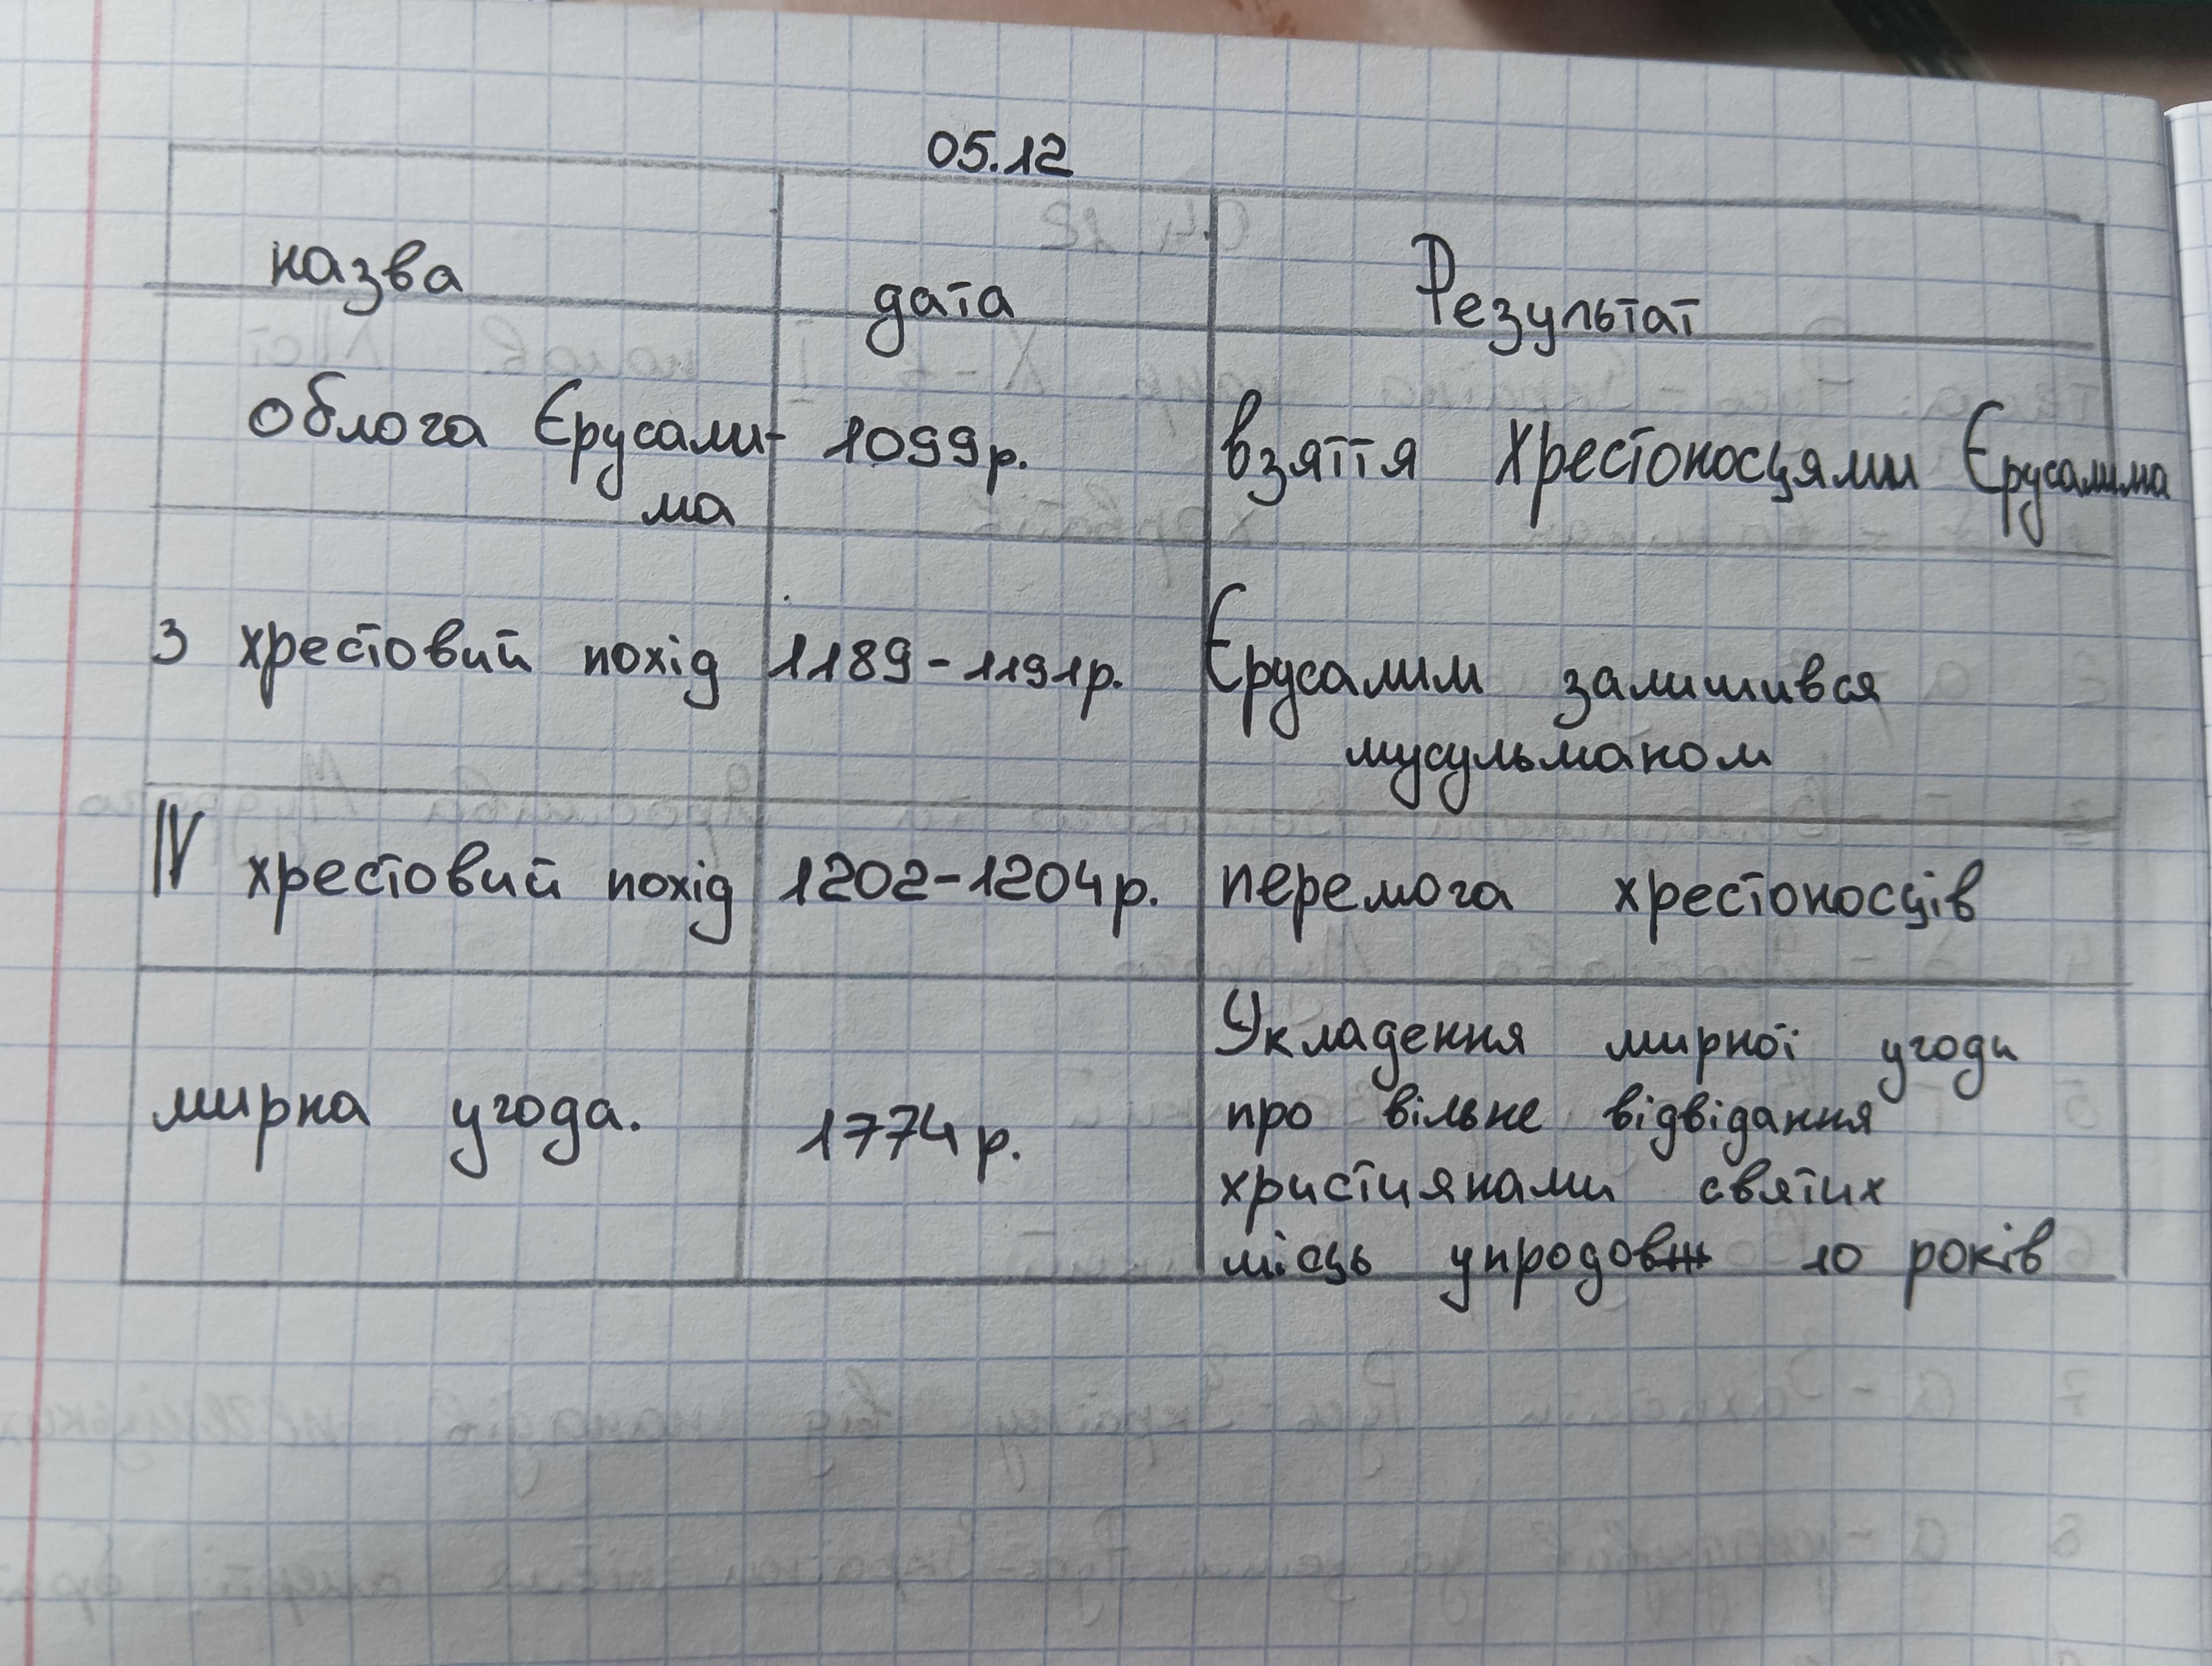 05.12
назва дата Результат
облога Єрусали- 1099р. взяття Хрестоносцями Єрусалима
ма
3 хрестовий похід 1189-1191р. Єрусалим залишився
мусульманом
IV хрестовий похід 1202-1204р. перемога хрестоносців
мирна угода. 1774р. Укладення мирної угоди
про вільне відвідання
християнами святих
місць упродовж 10 років